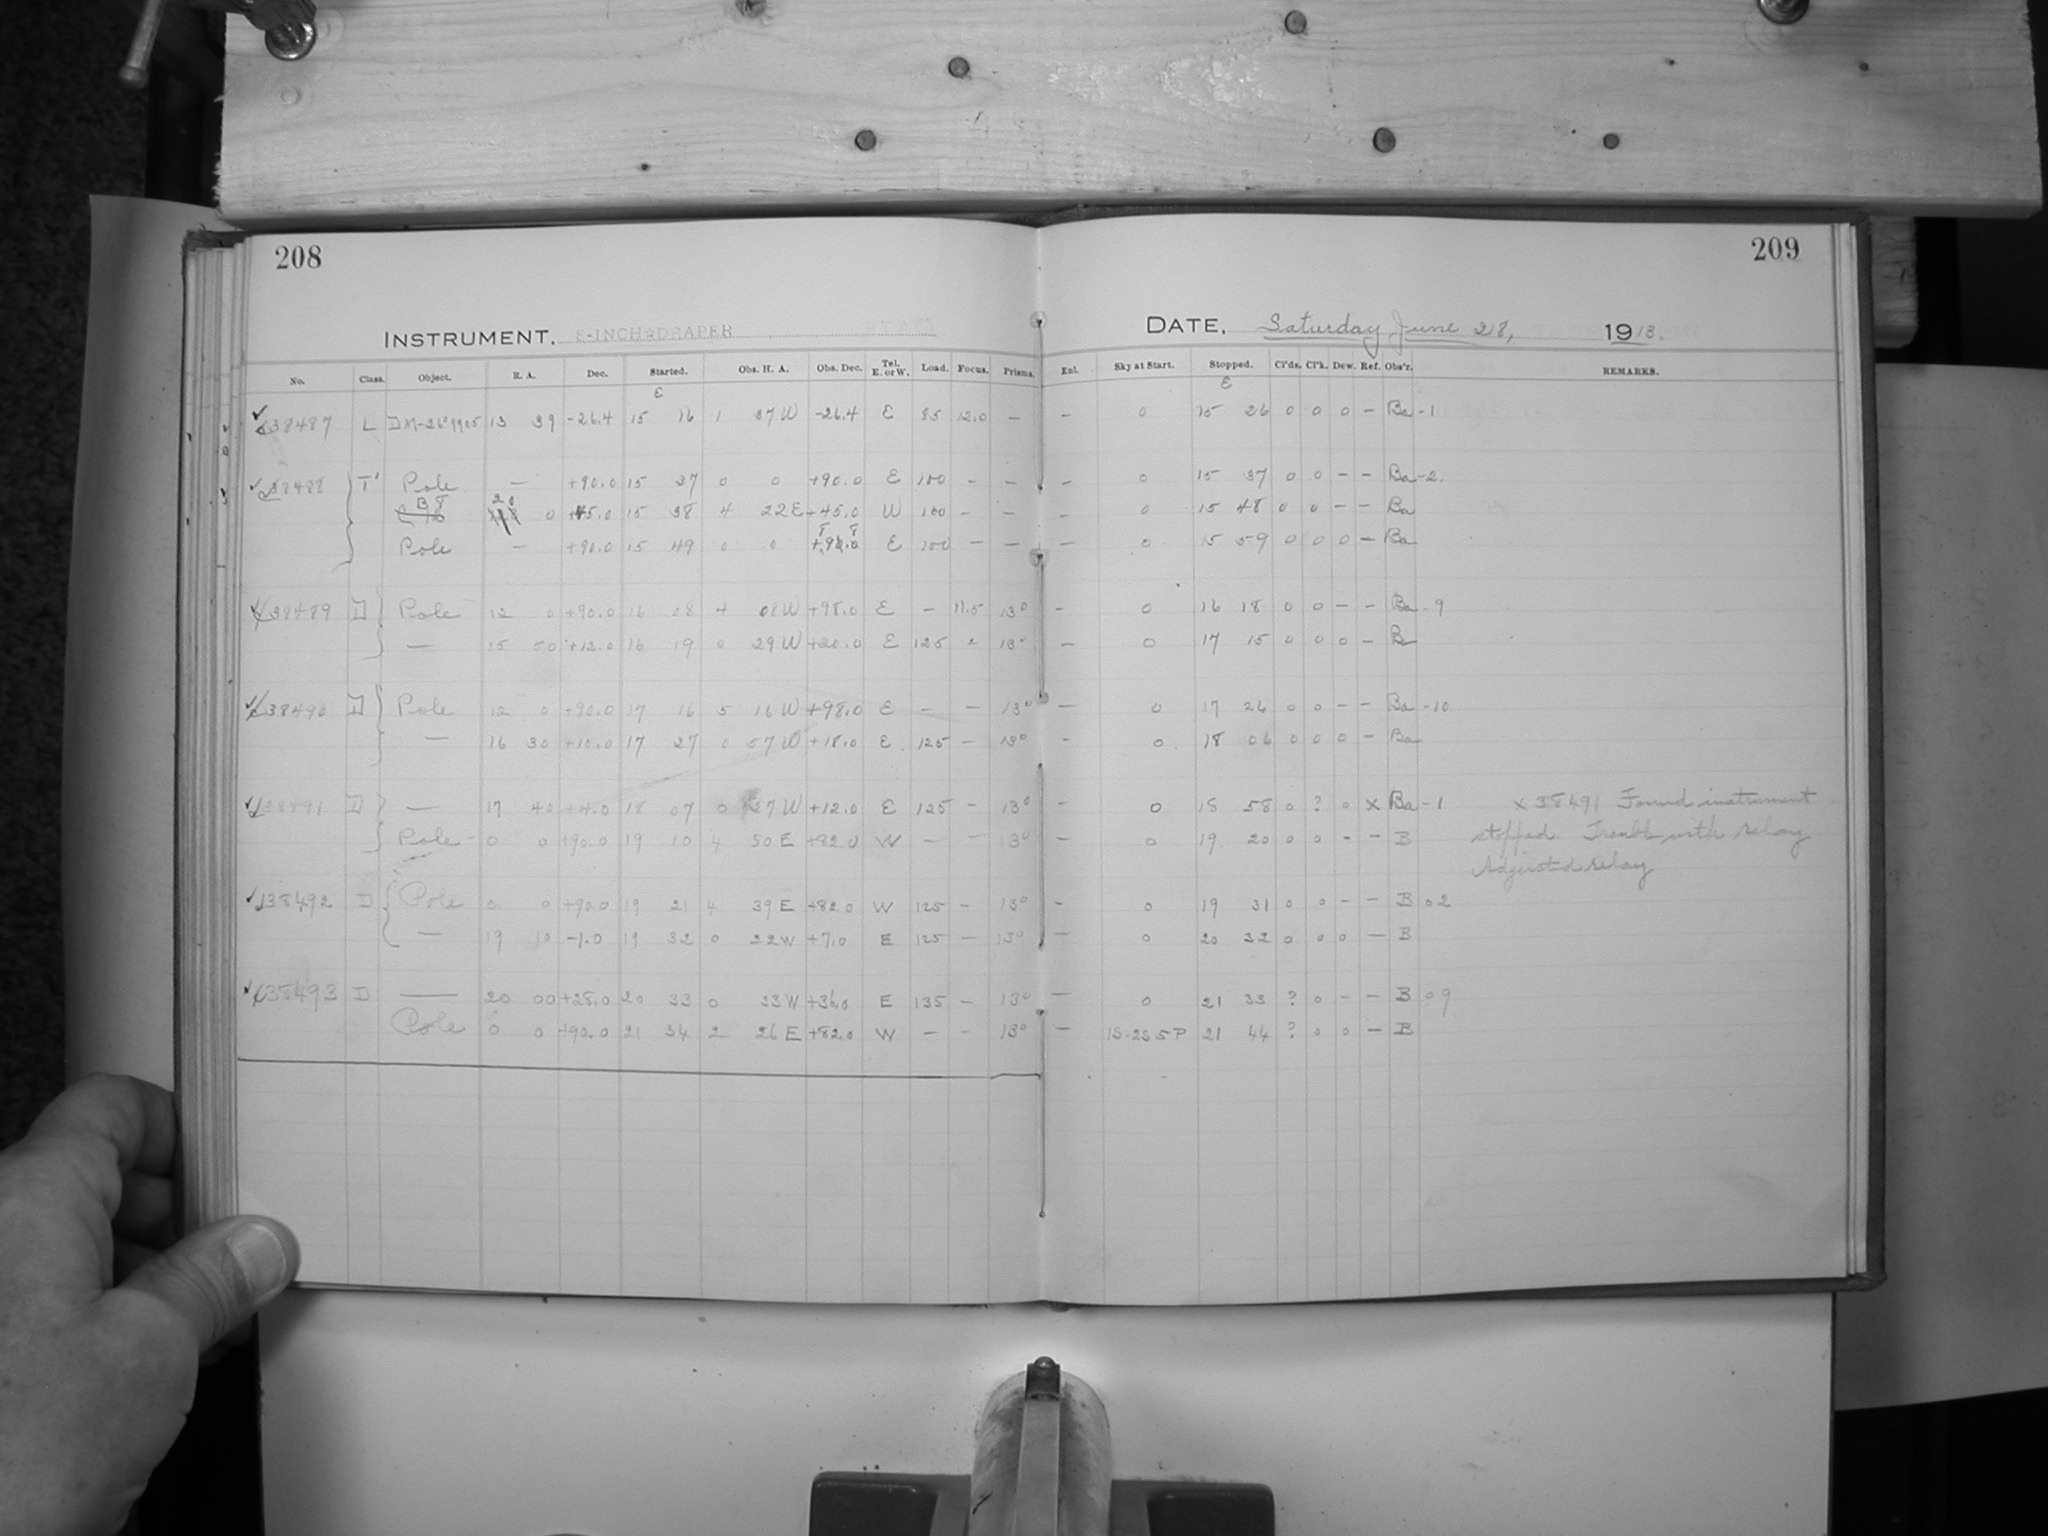 208
209
INSTRUMENT. 8-INCH DRAPER
DATE, Saturday June 28, 1913.
No. Class. Object. R. A. Dec. Started. Obs. H. A. Obs. Dec. Tel. E. or W. Load. Focus. Prisms. Enl. Sky at Start. Stopped. Cl'ds. Cl'k. Dew. Ref. Obs'r. REMARKS.
E E
38487 L DM-26°9905 13 39 -26.4 15 16 1 37 W -26.4 E 85 12.0 — — 0 15 26 0 0 0 — Ba -1
38488 T' Pole — +90.0 15 37 0 0 +90.0 E 100 — — — 0 15 37 0 0 — — Ba -2.
B8 20 0 +45.0 15 38 4 22 E +45.0 W 100 — — — 0 15 48 0 0 — — Ba
Pole — +90.0 15 49 0 0 E 100 — — — 0 15 59 0 0 0 — Ba
38489 D Pole 12 0 +90.0 16 08 4 08 W +98.0 E — 11.5 13° — 0 16 18 0 0 — — Ba -9
— 15 50 +12.0 16 19 0 29 W +20.0 E 125 - 13° — 0 17 15 0 0 0 — Ba
38490 D Pole 12 0 +90.0 17 16 5 16 W +98.0 E — — 13° — 0 17 26 0 0 — — Ba -10
— 16 30 +10.0 17 27 0 57 W +18.0 E 125 — 13° — 0 18 06 0 0 0 — Ba
38491 D — 17 40 +4.0 18 07 0 27 W +12.0 E 125 — 13° — 0 18 58 0 ? 0 X Ba -1 x 38491 Found instrument
Pole 0 0 +90.0 19 10 4 50 E +82.0 W — — 13° — 0 19 20 0 0 — — B stopped. Trouble with relay
Adjusted relay
38492 D Pole 0 0 +90.0 19 21 4 39 E +82.0 W 125 — 13° — 0 19 31 0 0 — — B 02
— 19 10 -1.0 19 32 0 22 W +7.0 E 125 — 13° — 0 20 32 0 0 0 — B
38493 D — 20 00 +28.0 20 33 0 33 W +36.0 E 135 — 13° — 0 21 33 ? 0 — — B 09
Pole 0 0 +90.0 21 34 2 26 E +82.0 W — — 13° — 1S-2S 5P 21 44 ? 0 0 — B